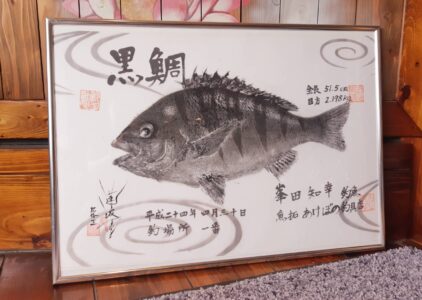 黒鯛
全長 51.5cm
目方 2.198kg
峯田知幸 釣魚
魚拓 あけぼの釣具店
平成二十四年四月三十日
釣場所 一番